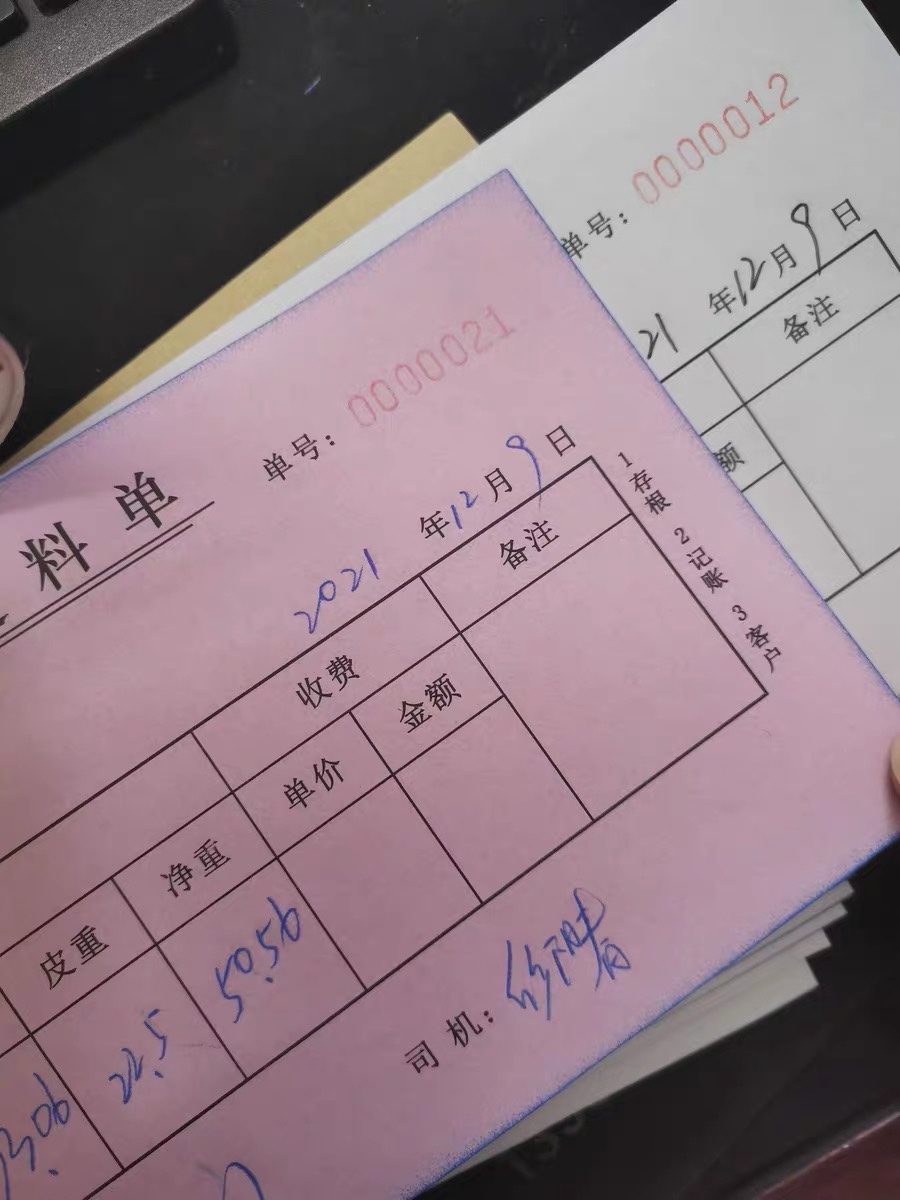 单号: 0000012
21 年 12 月 9 日
备注
额
料单
单号: 0000021
2021 年 12 月 9 日
收费 备注
皮重 净重 单价 金额
3.06 22.5 50.56
司机:
1存根 2记账 3客户